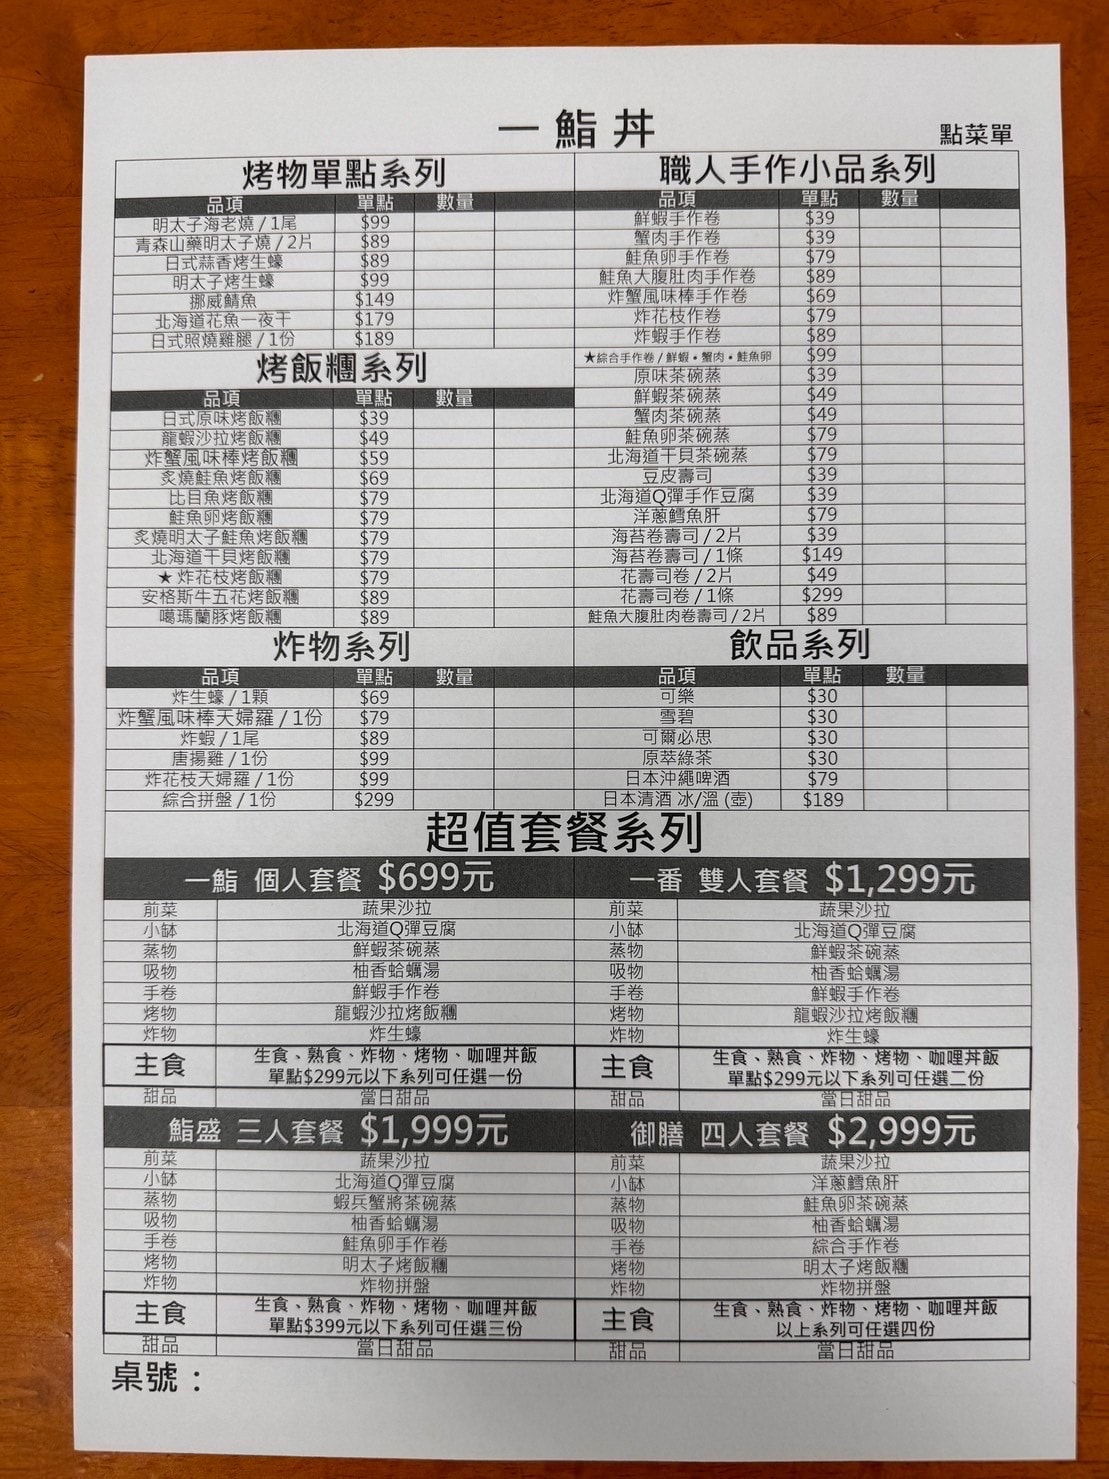 一鮨丼
點菜單
烤物單點系列
品項 單點 數量
明太子海老燒 / 1尾 $99
青森山藥明太子燒 / 2片 $89
日式蒜香烤生蠔 $89
明太子烤生蠔 $99
挪威鯖魚 $149
北海道花魚一夜干 $179
日式照燒雞腿 / 1份 $189
烤飯糰系列
品項 單點 數量
日式原味烤飯糰 $39
龍蝦沙拉烤飯糰 $49
炸蟹風味棒烤飯糰 $59
炙燒鮭魚烤飯糰 $69
比目魚烤飯糰 $79
鮭魚卵烤飯糰 $79
炙燒明太子鮭魚烤飯糰 $79
北海道干貝烤飯糰 $79
★ 炸花枝烤飯糰 $79
安格斯牛五花烤飯糰 $89
噶瑪蘭豚烤飯糰 $89
炸物系列
品項 單點 數量
炸生蠔 / 1顆 $69
炸蟹風味棒天婦羅 / 1份 $79
炸蝦 / 1尾 $89
唐揚雞 / 1份 $99
炸花枝天婦羅 / 1份 $99
綜合拼盤 / 1份 $299
職人手作小品系列
品項 單點 數量
鮮蝦手作卷 $39
蟹肉手作卷 $39
鮭魚卵手作卷 $79
鮭魚大腹肚肉手作卷 $89
炸蟹風味棒手作卷 $69
炸花枝作卷 $79
炸蝦手作卷 $89
★綜合手作卷 / 鮮蝦・蟹肉・鮭魚卵 $99
原味茶碗蒸 $39
鮮蝦茶碗蒸 $49
蟹肉茶碗蒸 $49
鮭魚卵茶碗蒸 $79
北海道干貝茶碗蒸 $79
豆皮壽司 $39
北海道Q彈手作豆腐 $39
洋蔥鱈魚肝 $79
海苔卷壽司 / 2片 $39
海苔卷壽司 / 1條 $149
花壽司卷 / 2片 $49
花壽司卷 / 1條 $299
鮭魚大腹肚肉卷壽司 / 2片 $89
飲品系列
品項 單點 數量
可樂 $30
雪碧 $30
可爾必思 $30
原萃綠茶 $30
日本沖繩啤酒 $79
日本清酒 冰/溫 (壺) $189
超值套餐系列
一鮨 個人套餐 $699元
前菜 蔬果沙拉
小缽 北海道Q彈豆腐
蒸物 鮮蝦茶碗蒸
吸物 柚香蛤蠣湯
手卷 鮮蝦手作卷
烤物 龍蝦沙拉烤飯糰
炸物 炸生蠔
主食 生食、熟食、炸物、烤物、咖哩丼飯
單點$299元以下系列可任選一份
甜品 當日甜品
一番 雙人套餐 $1,299元
前菜 蔬果沙拉
小缽 北海道Q彈豆腐
蒸物 鮮蝦茶碗蒸
吸物 柚香蛤蠣湯
手卷 鮮蝦手作卷
烤物 龍蝦沙拉烤飯糰
炸物 炸生蠔
主食 生食、熟食、炸物、烤物、咖哩丼飯
單點$299元以下系列可任選二份
甜品 當日甜品
鮨盛 三人套餐 $1,999元
前菜 蔬果沙拉
小缽 北海道Q彈豆腐
蒸物 蝦兵蟹將茶碗蒸
吸物 柚香蛤蠣湯
手卷 鮭魚卵手作卷
烤物 明太子烤飯糰
炸物 炸物拼盤
主食 生食、熟食、炸物、烤物、咖哩丼飯
單點$399元以下系列可任選三份
甜品 當日甜品
御膳 四人套餐 $2,999元
前菜 蔬果沙拉
小缽 洋蔥鱈魚肝
蒸物 鮭魚卵茶碗蒸
吸物 柚香蛤蠣湯
手卷 綜合手作卷
烤物 明太子烤飯糰
炸物 炸物拼盤
主食 生食、熟食、炸物、烤物、咖哩丼飯
以上系列可任選四份
甜品 當日甜品
桌號：